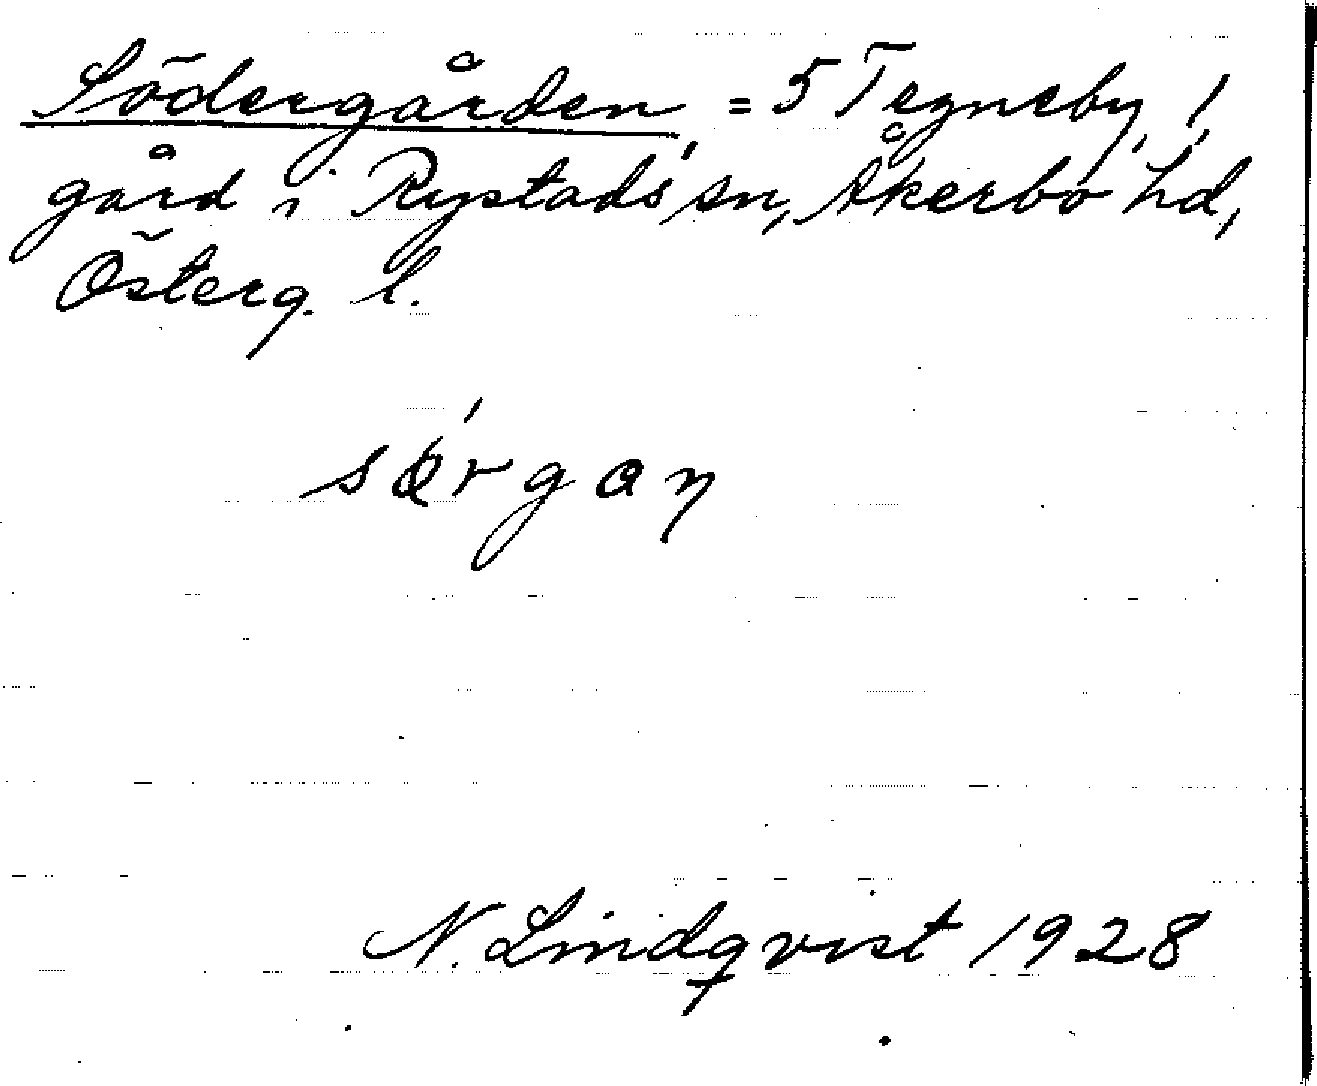 Södergården, = 5 Tegneby, 1
gård i Rystads sn, Åkerbo hd,
Österg. l.
sø̀rgaŋ
N. Lindqvist 1928